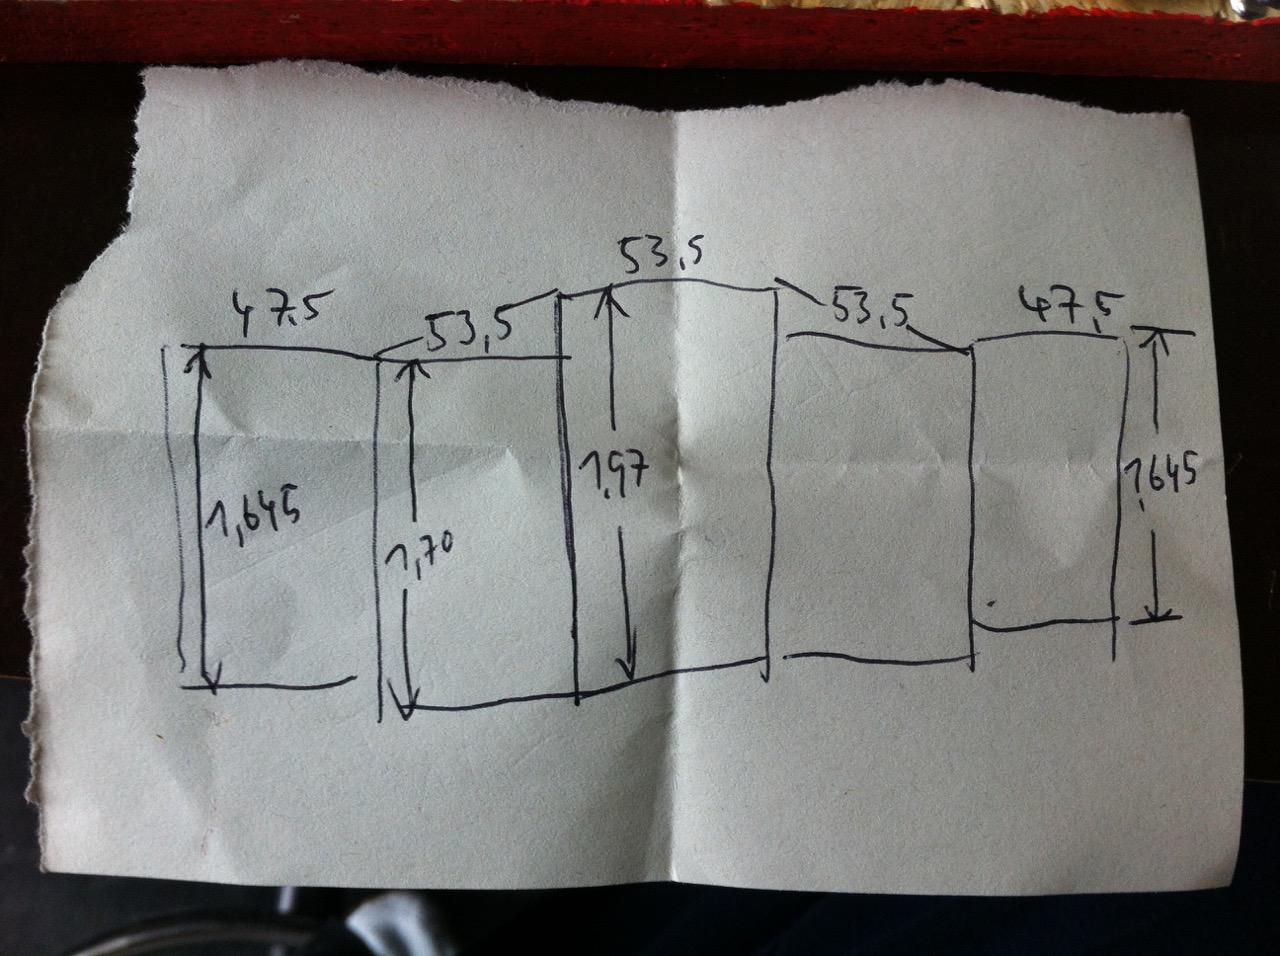 53,5
47,5
53,5
53,5
47,5
1,645
1,70
1,97
1,645